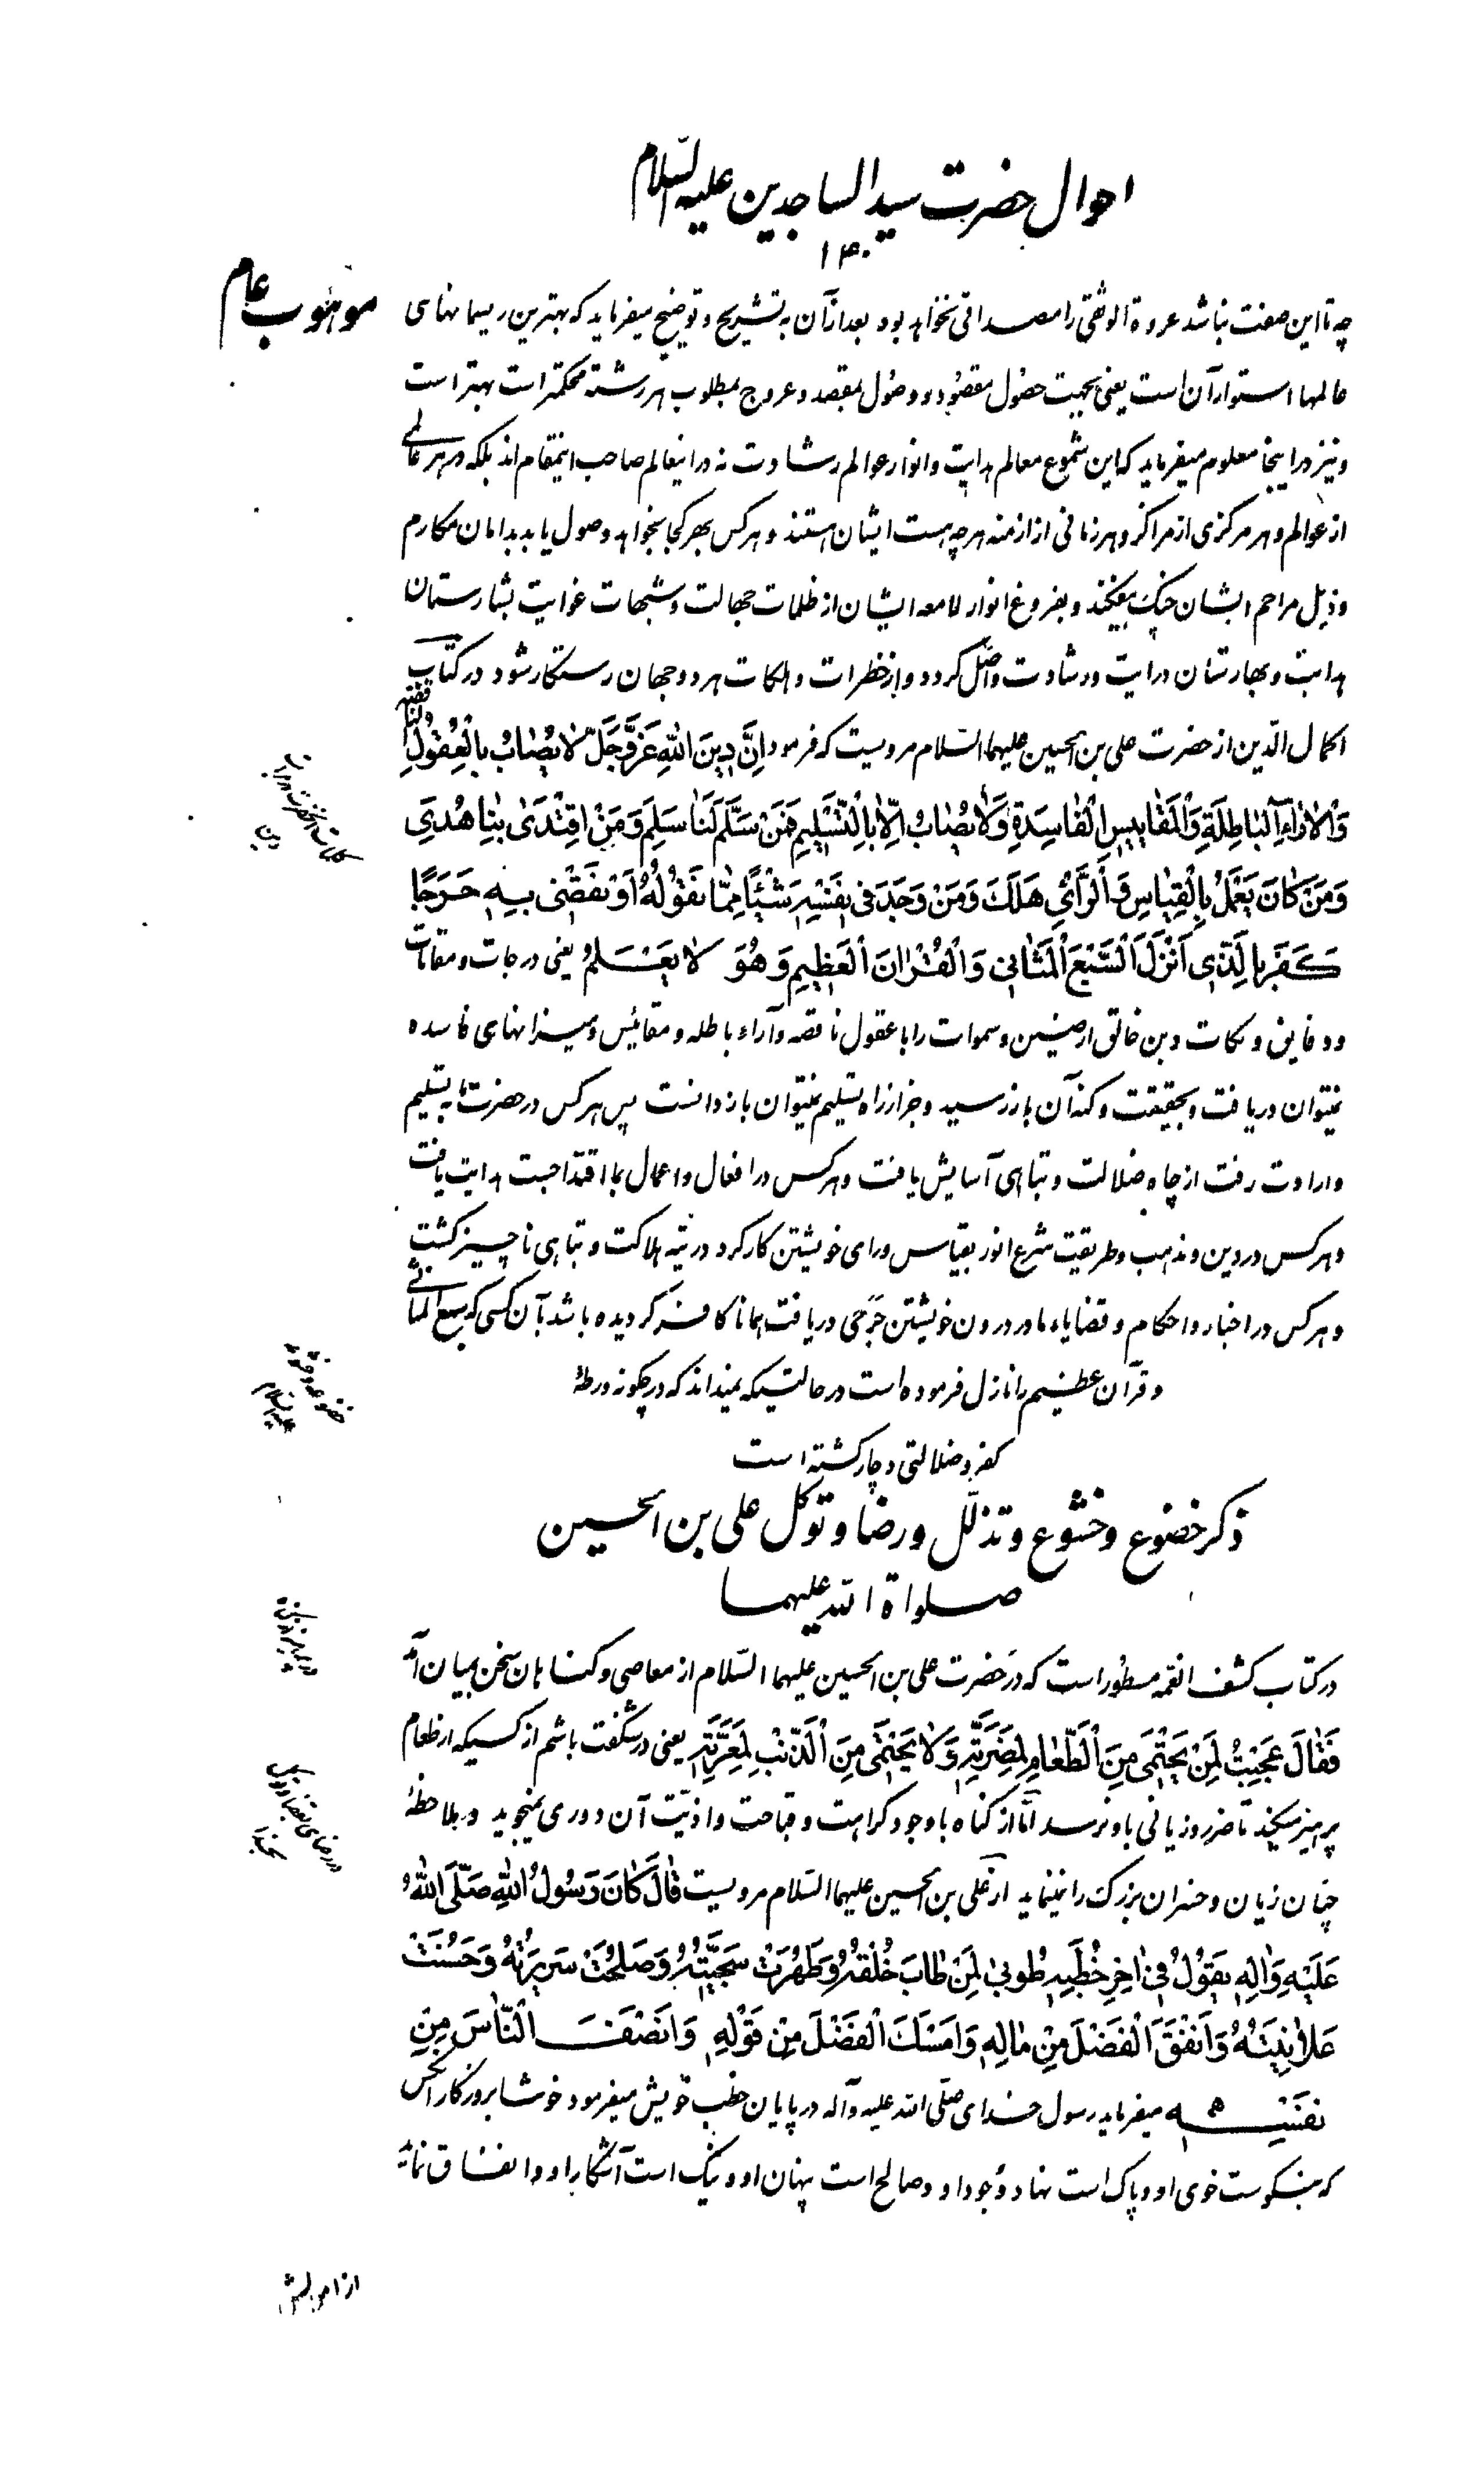 احوال حضرت سید الساجدین علیه السّلام
۱۴۰
موهوب عام
چه تا این صفت نباشد عروة الوثقی را مصداقی نخواهد بود بعد از آن به تشریح و توضیح میفرماید که بهترین ریسمانهای
عالمها استوار آن است یعنی بجهت حصول مقصود و وصول بمقصد و عروج بمطلوب هر رشته محکمتر است بهتر است
و نیز در اینجا معلوم میفرماید که این شموع معالم هدایت و انوار عوالم رشادت نه در اینعالم صاحب اینمقام اند بلکه در هر عالمی
از عوالم و هر مرکزی از مراکز و هر زمانی از ازمنه هر چه هست ایشان هستند و هر کس بهر کجا بخواهد وصول یابد بدامان مکارم
و ذیل مراحم ایشان چنگ بیفکند و بفروغ انوار لامعه ایشان از ظلمات جهالت و شبهات غوایت بشارستان
هدایت و بهارستان درایت و رشادت واصل گردد و از خطرات و هلکات هر دو جهان رستگار شود در کتاب
اکمال الدّین از حضرت علی بن الحسین علیهما السّلام مرویست که فرمود اِنَّ دِینَ اللهِ عَزَّوَجَلَّ لا یُصابُ بِالْعُقُولِ النّاقِصَةِ
وَالْاٰراءِ الْباطِلَةِ وَالْمَقائیسِ الْفاسِدَةِ وَلا یُصابُ اِلّا بِالتَّسْلیمِ فَمَنْ سَلَّمَ لَنا سَلِمَ وَمَنْ اقْتَدیٰ بِنا هُدِیَ
وَمَنْ کانَ یَعْمَلُ بِالْقِیاسِ وَالرَّأْیِ هَلَکَ وَمَنْ وَجَدَ فی نَفْسِهِ شَیْئًا مِمّا نَقُولُهُ اَوْ نَقْضی بِهِ حَرَجًا
کَفَرَ بِالَّذی اَنْزَلَ السَّبْعَ الْمَثانی وَالْقُرْانَ الْعَظیمَ وَهُوَ لا یَعْلَمُ یعنی درجات و مقامات
و دقایق و نکات دین خالق ارضین و سموات را با عقول ناقصه و آراء باطله و مقائیس و میزانهای فاسده
نمیتوان دریافت و بحقیقت و کنه آن باز رسید و جز از راه تسلیم نمیتوان باز دانست پس هر کس در حضرت ما به تسلیم
و ارادت رفت از چاه ضلالت و تباهی آسایش یافت و هر کس در افعال و اعمال بما اقتدا جست هدایت یافت
و هر کس در دین و مذهب و طریقت شرع انور بقیاس و رای خویشتن کار کرد در تیه هلاکت و تباهی ناچیز گشت
و هر کس در اخبار و احکام و قضایاء ما در درون خویشتن حَرَجی دریافت همانا کافر گردیده باشد بآن کسی که سبع المثانی
و قرآن عظیم را نازل فرموده است در حالتیکه نمیداند که در چگونه ورطهٔ
کفر و ضلالتی دچار گشته است
ذکر خضوع و خشوع و تذلّل و رضا و توکل علی بن الحسین
صلواة الله علیهما
در کتاب کشف الغمه مسطور است که در حضرت علی بن الحسین علیهما السّلام از معاصی و گناهان سخن بمیان آمد
فَقالَ عَجِبْتُ لِمَنْ یَحْتَمی مِنَ الطَّعامِ لِمَضَرَّتِهِ وَلا یَحْتَمی مِنَ الذَّنْبِ لِمَعَرَّتِهِ یعنی در شگفت باشم از کسیکه از طعام
پرهیز میکند تا ضرر و زیانی باو نرسد امّا از گناه با وجود کراهت و قباحت و اذیّت آن دوری نمیجوید و ملاحظهٔ
چنان زیان و خسران بزرگ را نمینماید از علی بن الحسین علیهما السّلام مرویست قالَ کانَ رَسُولُ اللهِ صَلَّی اللهُ
عَلَیْهِ وَالِهِ یَقُولُ فی اٰخِرِ خُطَبِهِ طُوبیٰ لِمَنْ طابَ خُلْقُهُ وَطَهُرَتْ سَجِیَّتُهُ وَصَلُحَتْ سَریرَتُهُ وَحَسُنَتْ
عَلانِیَتُهُ وَاَنْفَقَ الْفَضْلَ مِنْ مالِهِ وَاَمْسَکَ الْفَضْلَ مِنْ قَوْلِهِ وَاَنْصَفَ النّاسَ مِنْ
نَفْسِهِ میفرماید رسول خدای صلّی الله علیه و آله در پایان خطب خویش میفرمود خوشا بروزگار آنکس
که نیکوست خوی او و پاک است نهاد و جود او و صالح است پنهان او و نیک است آشکار او و انفاق نماید
از اموالش